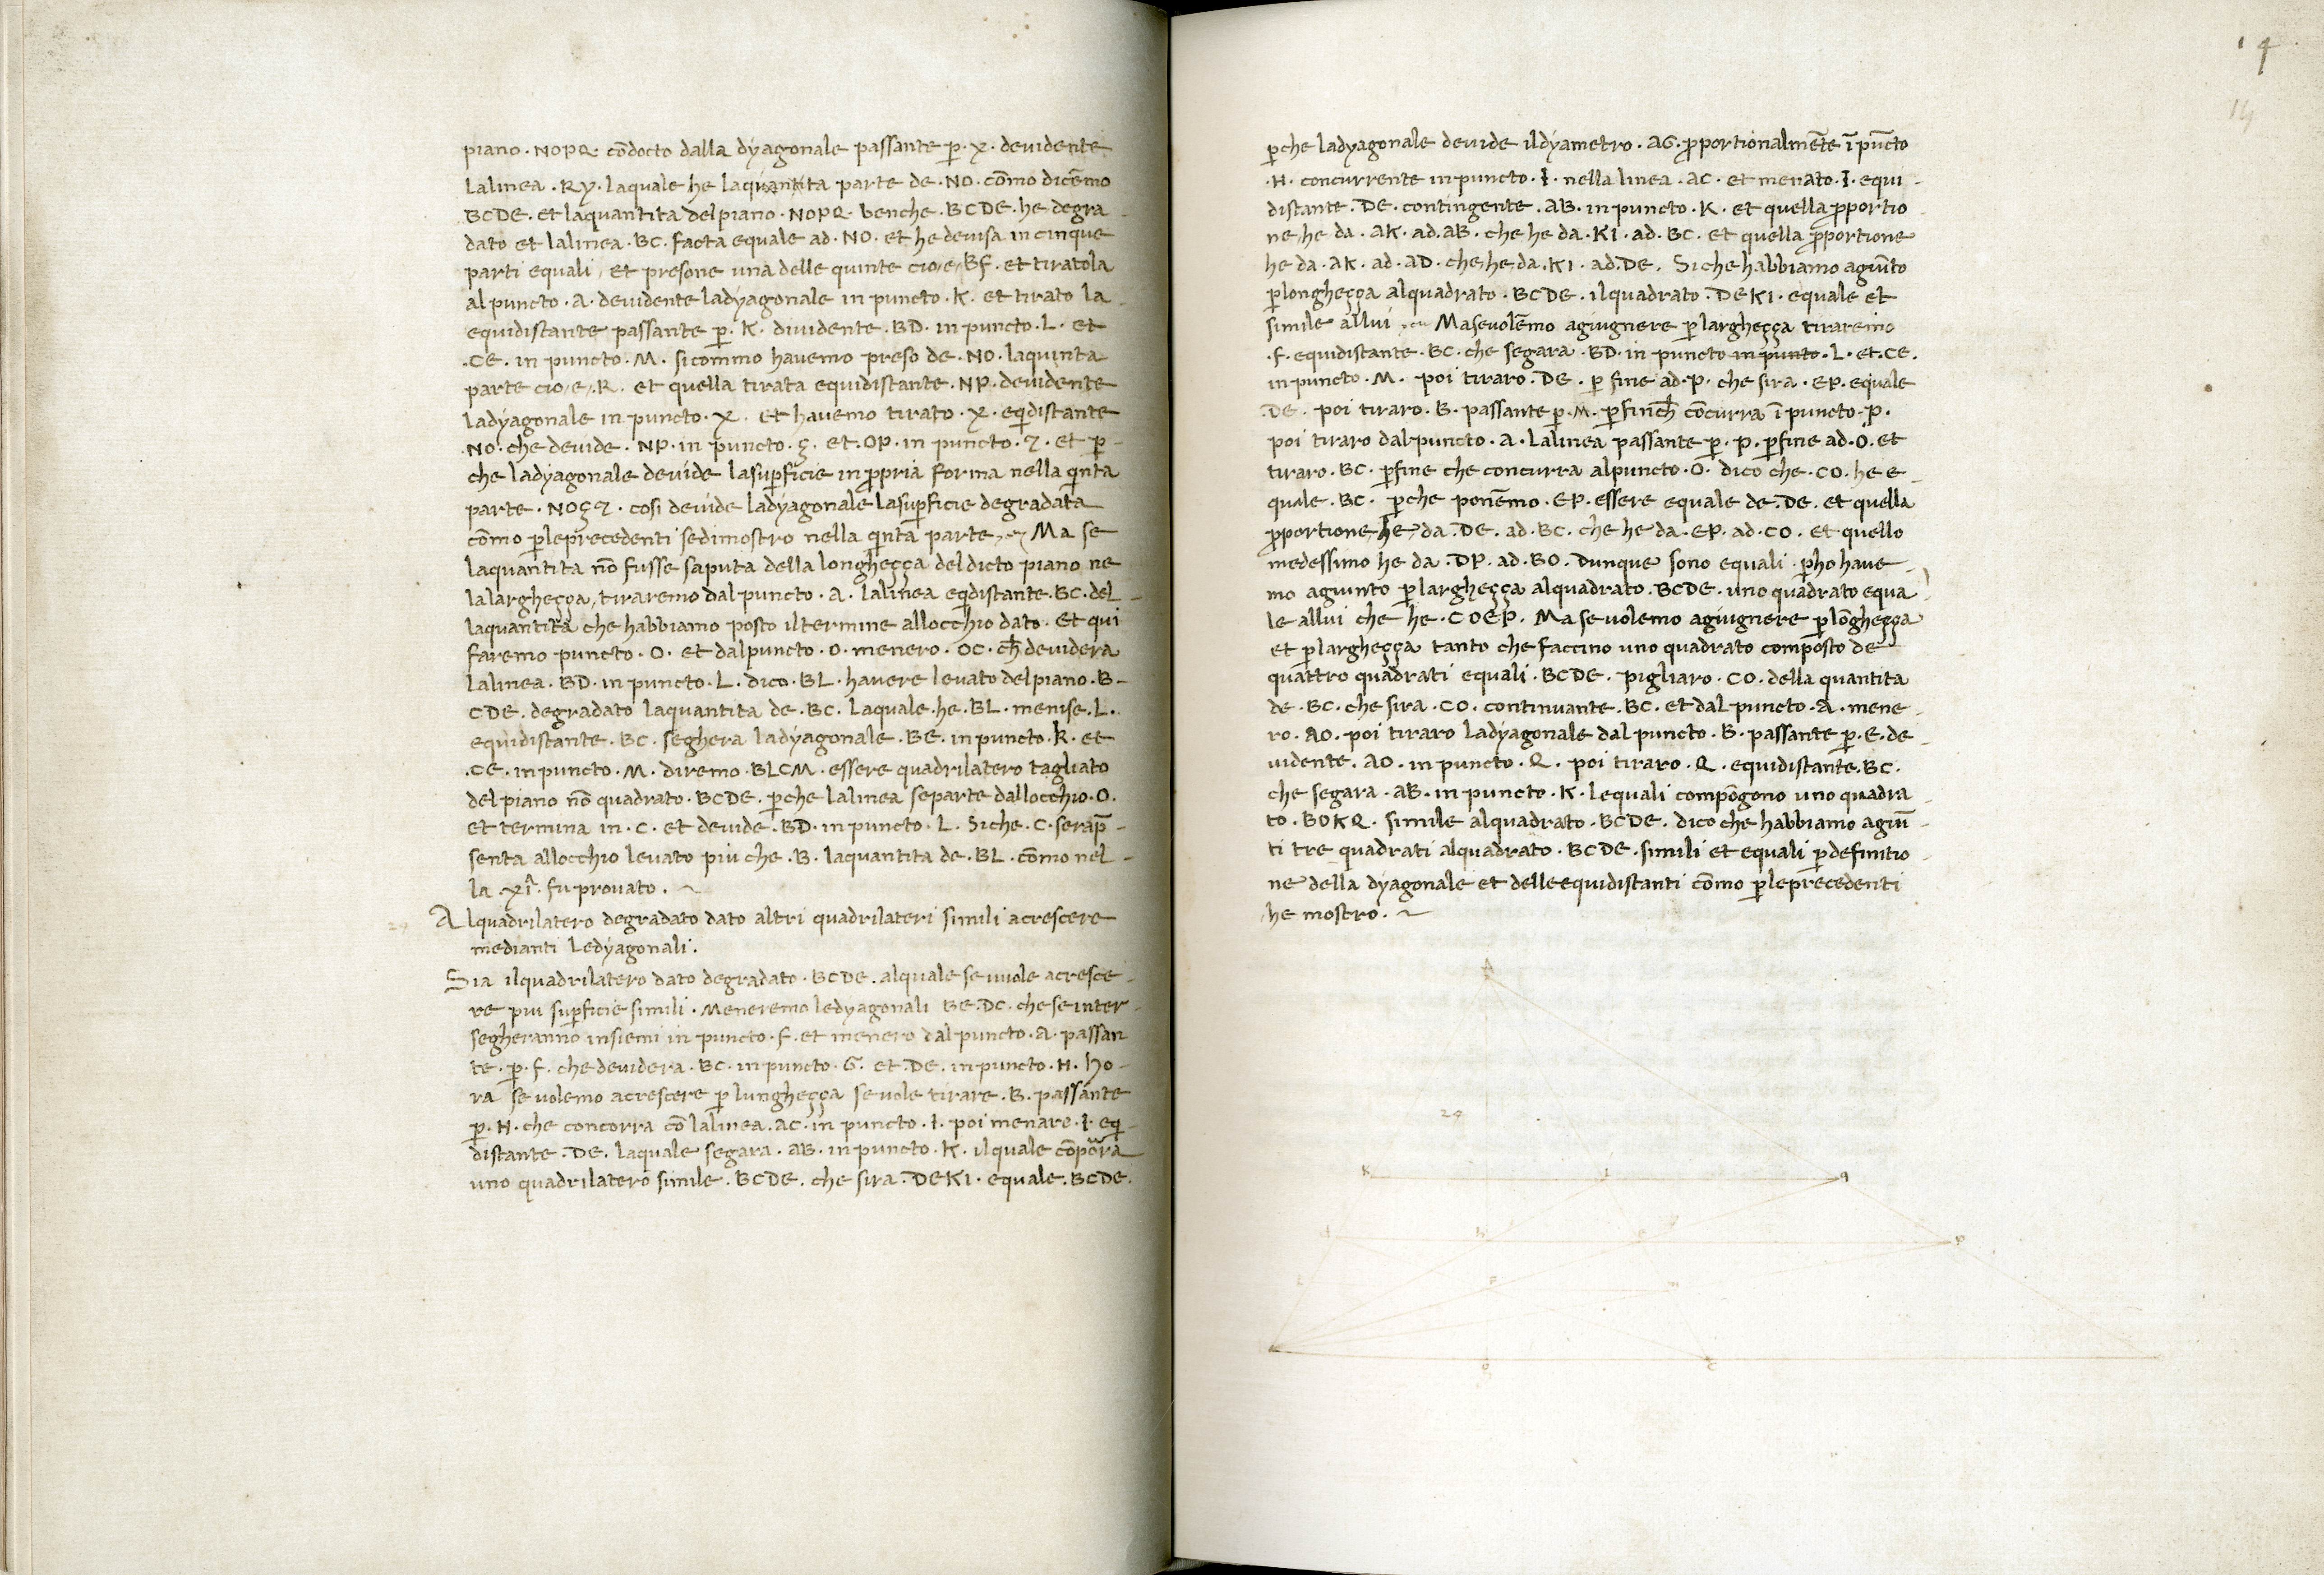 piano · NOPQ · cōdocto dalla dyagonale passante p̄ · X · deuidente
lalinea · RY · laquale he laquantita parte de · NO · cōmo dicēmo
BCDE · et laquantita del piano · NOPQ · benche · BCDE · he degra-
dato et lalinea · BC · facta equale ad · NO · et he deuisa in cinque
parti equali, et presone una delle quinte cio,e, BF · et tiratola
al puncto · A · deuidente ladyagonale in puncto · K · et tirato la
equidistante passante p̄ · K · diuidente · BD · in puncto · L · et
· CE · in puncto · M · sicommo havemo preso de · NO · laquinta
parte cio,e, · R · et quella tirata equidistante · NP · deuidente
ladyagonale in puncto · X · et havemo tirato · X · eqidistante
· NO · che deuide · NP · in puncto · ç · et · OP · in puncto · 7 · et p̄-
che ladyagonale deuide lasup̄ficie in p̄pria forma nella qinta
parte · NOç7 · cosi deuide ladyagonale lasup̄ficie degradata
cōmo p̄leprecedenti sedimostro nella qinta parte, ~ Ma se
laquantita nō fusse saputa della longheçça del dicto piano ne
lalargheçça, tiraremo dal puncto · A · lalinea eqidistante · BC · del-
laquantita che habbiamo posto il termine allocchio dato · Et qui
faremo puncto · O · et dal puncto · O · menero · OC · ch̄ deuidera
lalinea · BD · in puncto · L · dico · BL · havere levato del piano · B-
CDE · degradato laquantita de · BC · laquale · he · BL · menise · L ·
equidistante · BC · seghera ladyagonale · BE · in puncto · K · et
· CE · in puncto · M · diremo · BLCM · essere quadrilatero tagliato
del piano nō quadrato · BCDE · p̄che lalinea separte dallocchio · O ·
et termina in · C · et deuide · BD · in puncto · L · Siche · C · serap̄-
senta allocchio levato più che · B · laquantita de · BL · cōmo nel-
la · xi · fu provato · ~
Alquadrilatero degradato dato altri quadrilateri simili acrescere
medianti Ledyagonali ·
Sia ilquadrilatero dato degradato · BCDE · alquale se uuole acresce-
re piu sup̄ficie simili · Meneremo ledyagonali BE · DC · che se inter-
segheranno insiemi in puncto · F · et menero dal puncto · A · passan
te · p̄ · F · che deuidera · BC · in puncto · G · et · DE · in puncto · H · Ho-
ra se volemo acrescere p̄ lungheçça se vole tirare · B · passante
p̄ · H · che concorra cō lalinea · AC · in puncto · I · poi menare · I · eqi-
distante · DE · laquale segara · AB · in puncto · K · ilquale cōporra
uno quadrilatero simile · BCDE · che sira · DEKI · equale · BCDE ·
14
14
p̄che ladyagonale deuide ildyametro · AG · p̄portionalmēte ī pūcto
· H · concurrente in puncto · I · nella linea · AC · et menato · I · equi-
distante · DE · contingente · AB · in puncto · K · et quella p̄portio-
ne, he da · AK · ad · AB · che he da · KI · ad · BC · et quella p̄portione
he da · AK · ad · AD · che, he, da · KI · ad · DE · Siche habbiamo agiūto
p̄longheçça alquadrato · BCDE · ilquadrato · DEKI · equale et
simile allui ~ Ma se volēmo agiugnere p̄ largheçça tiraremo
· F · equidistante · BC · che segara · BD · in puncto in punto · L · et · CE ·
in puncto · M · poi tiraro · DE · p̄ fine ad · P · che sira · EP · equale
· DE · poi tiraro · B · passante p̄ · M · p̄ finch̄ cōncurra ī puncto · P ·
poi tiraro dal puncto · A · Lalinea passante p̄ · P · p̄fine ad · O · et
tiraro · BC · p̄fine che concurra al puncto · O · dico che · CO · he e-
quale · BC · p̄che ponēmo · EP · essere equale de · DE · et quella
p̄portione he, da · DE · ad · BC · che he da · EP · ad · CO · et quello
medessimo he da · DP · ad · BO · Dunque sono equali · p̄ho have-
mo agiunto p̄ largheçça alquadrato · BCDE · uno quadrato equa-
le allui che he · COEP · Ma se volemo agiugnere p̄ lōgheçça
et p̄ largheçça tanto che faccino uno quadrato composto de
quattro quadrati equali · BCDE · pigliaro · CO · della quantita
de · BC · che sira · CO · continuante · BC · et dal puncto · A · mene-
ro · AO · poi tiraro ladyagonale dal puncto · B · passante p̄ · E · de-
uidente · AO · in puncto · Q · poi tiraro · Q · equidistante · BC ·
che segara · AB · in puncto · K · lequali compōgono uno quadra-
to · BOKQ · simile alquadrato · BCDE · dico che habbiamo agiū-
ti tre quadrati alquadrato · BCDE · simili et equali p̄ definitio-
ne della dyagonale et delle equidistanti cōmo p̄leprecedenti
he mostro · ~
A
24
K I q
d h e P
L F m
G C